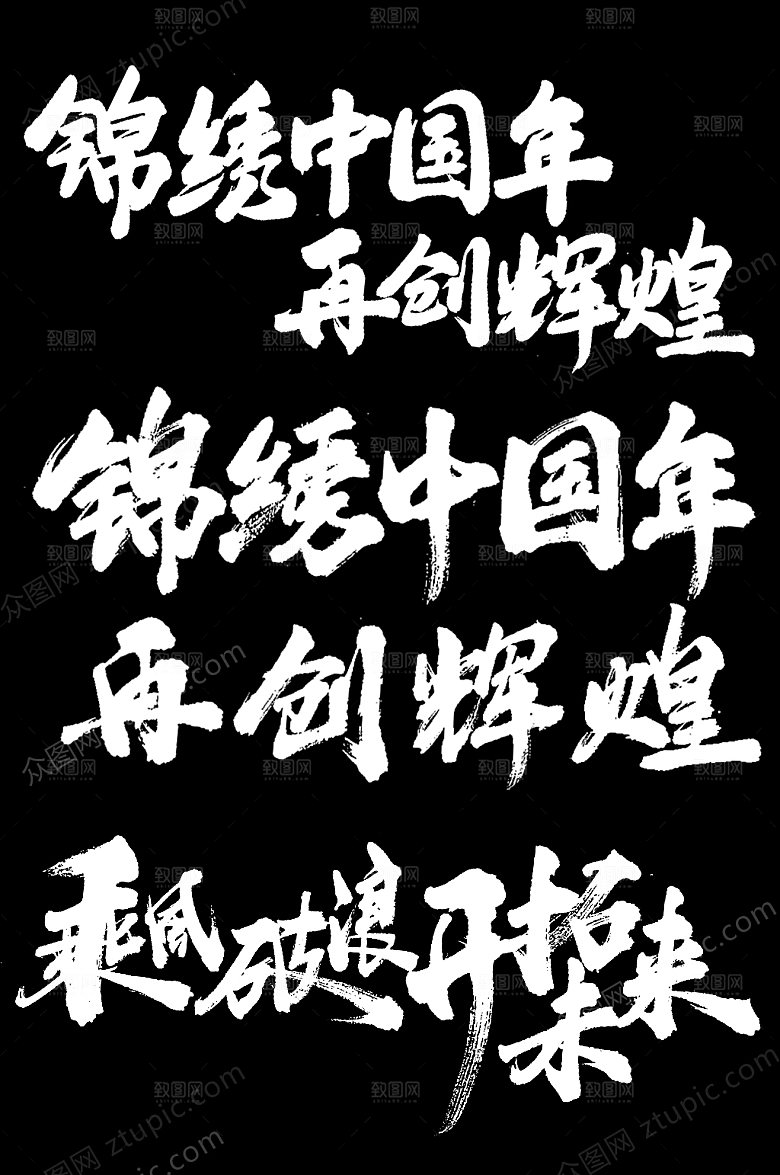 锦绣中国年
再创辉煌
锦绣中国年
再创辉煌
乘风破浪开拓
未来
众图网 ztupic.com
致图网